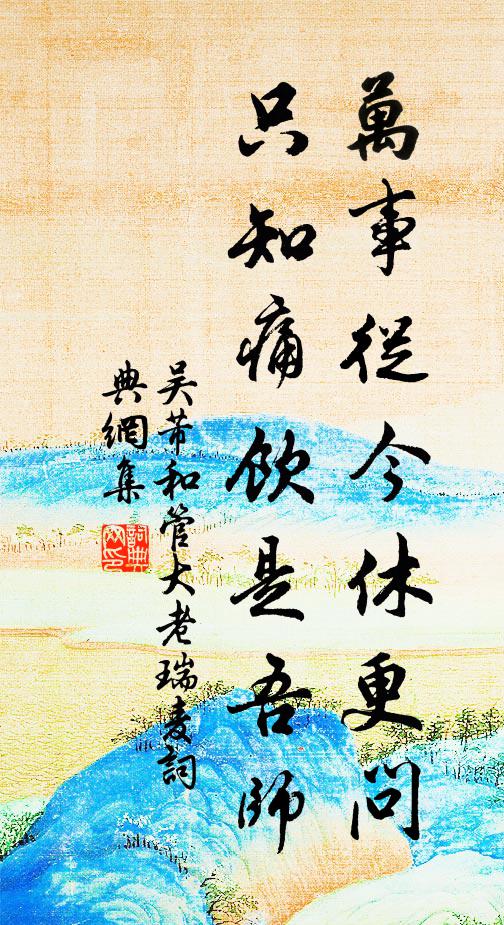 萬事從今休更問
只知痛飲是吾師
吳芾和管大老瑞麦詞
典網集